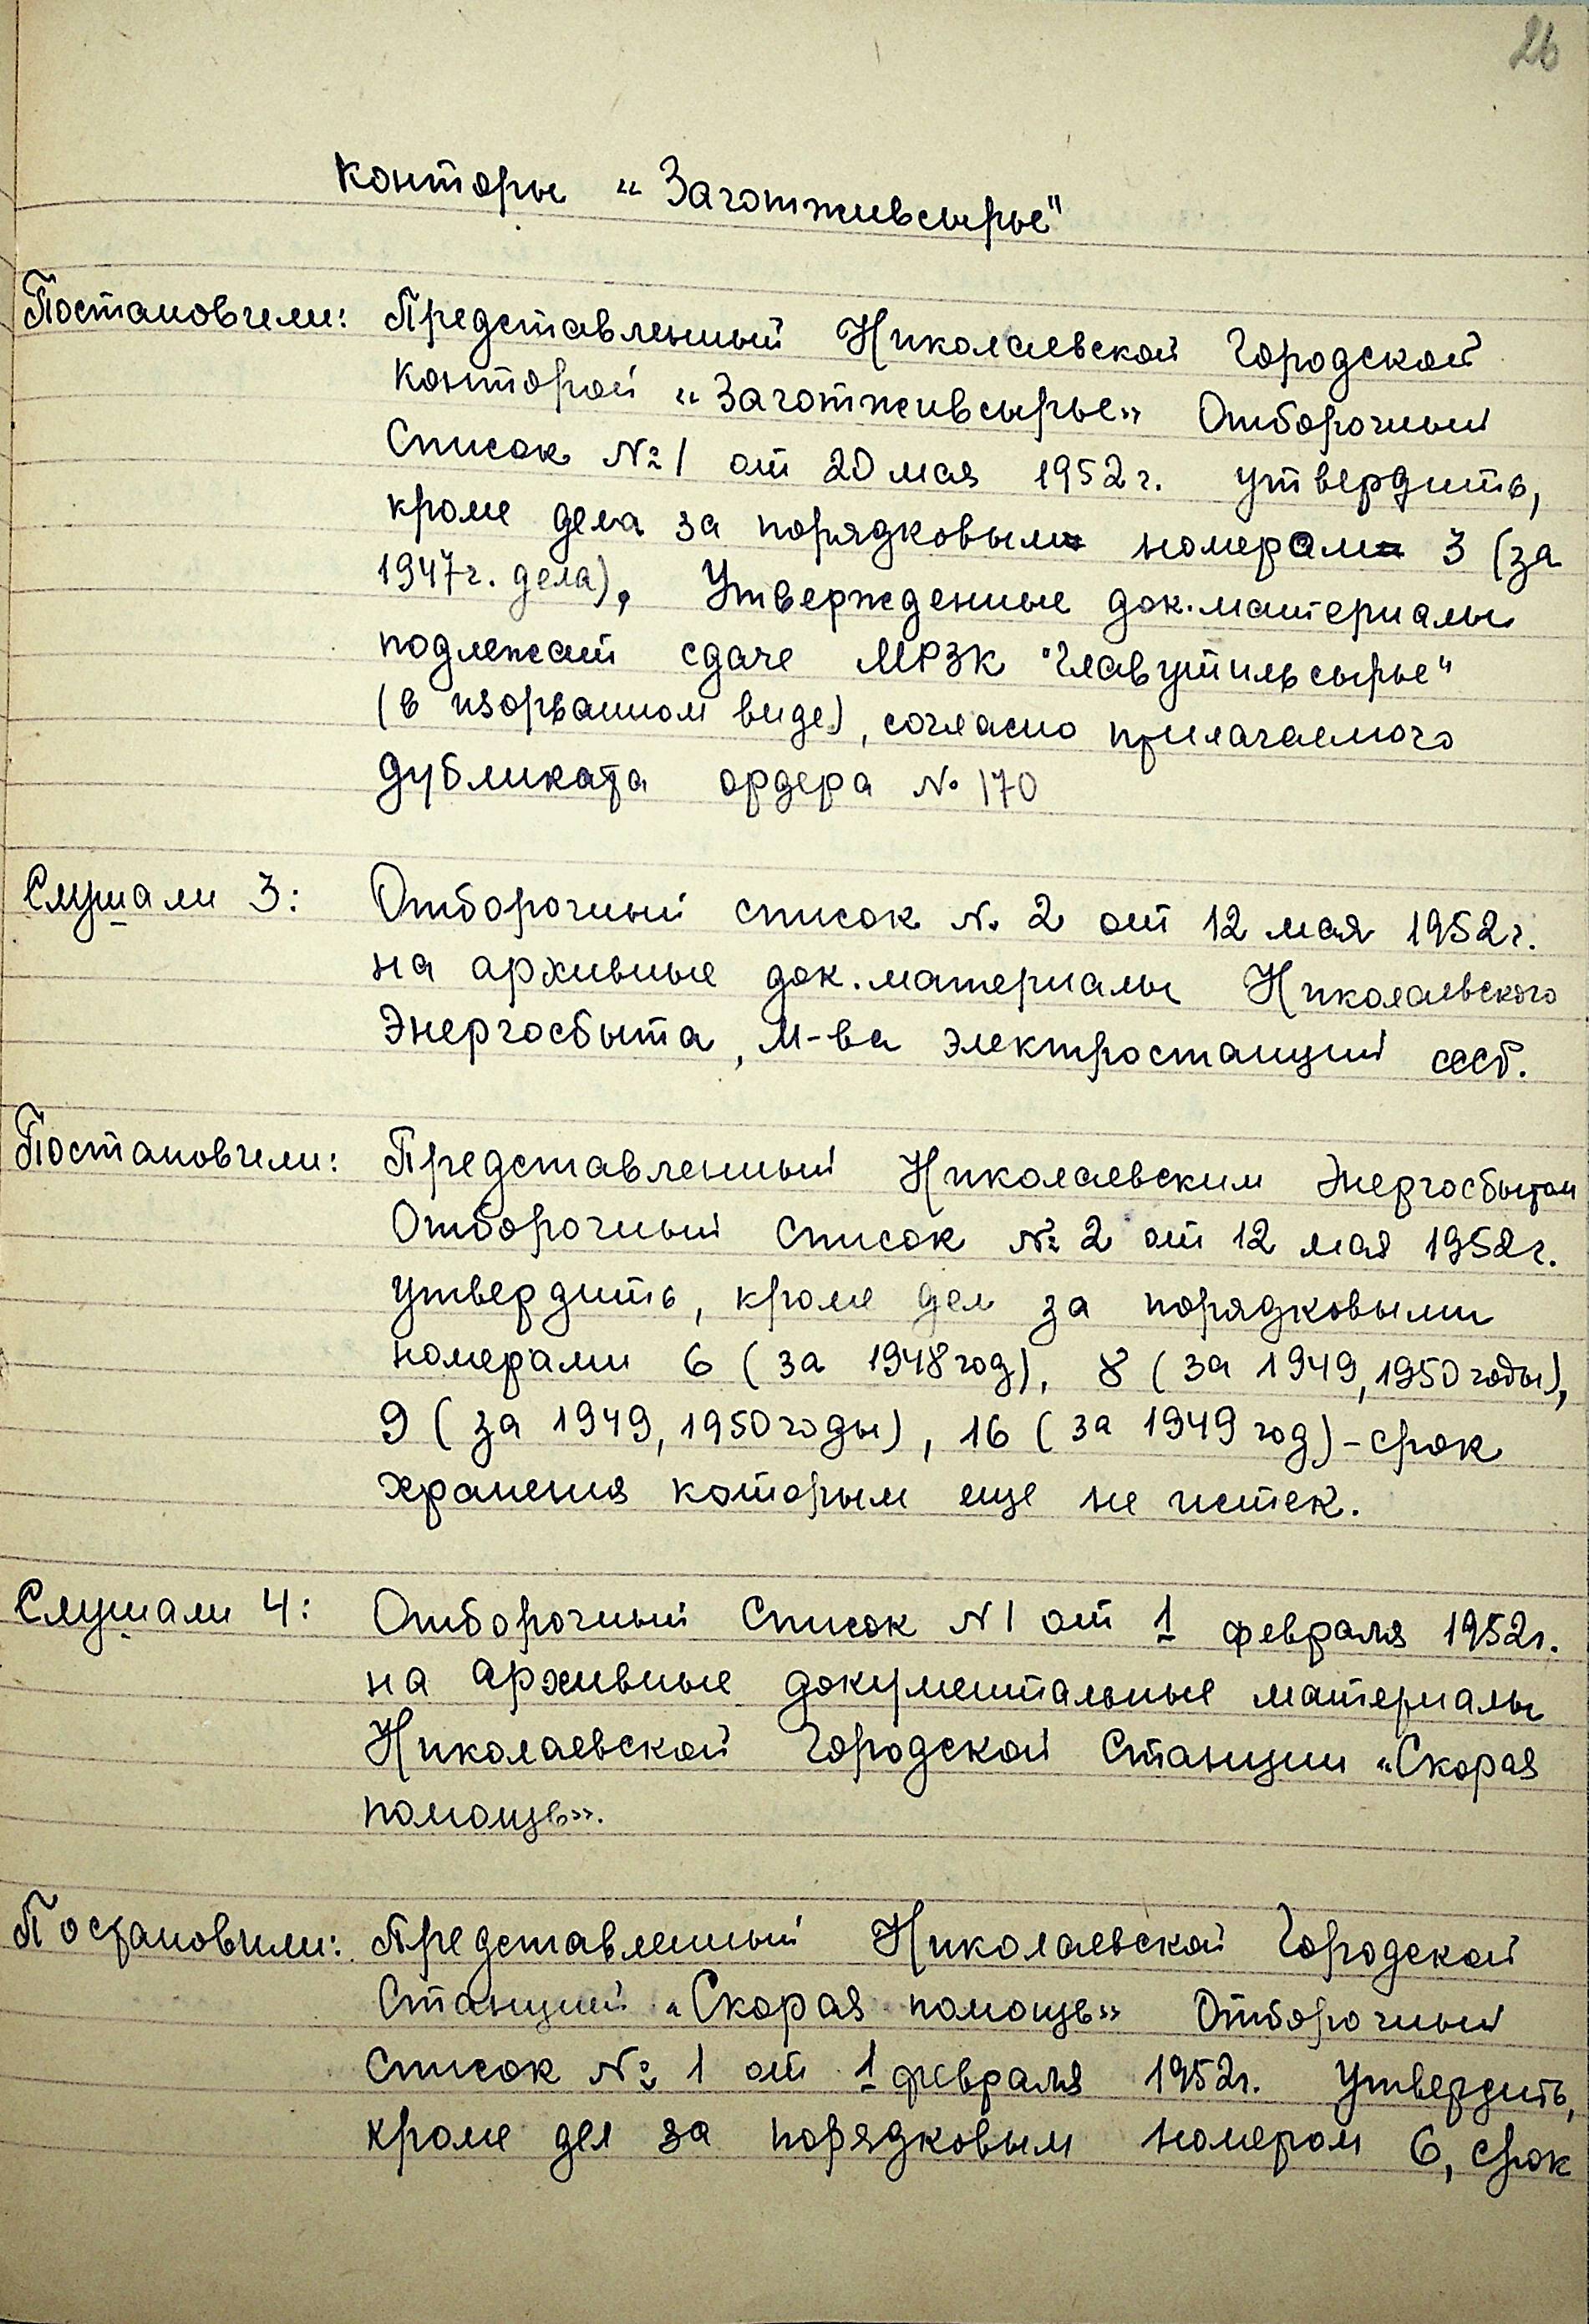 26
конторы „Заготживсырье"
Постановили: Представленный Николаевской Городской
Конторой „Заготживсырье" Отборочный
Список №1 от 20 мая 1952г. утвердить,
кроме дела за порядковым номером 3 (за
1947г. дела), Утвержденные док.материалы
подлежат сдаче МРЗК "Главутильсырье"
(в изорванном виде), согласно прилагаемого
дубликата ордера № 170
Слушали 3: Отборочный список № 2 от 12 мая 1952г.
на архивные док.материалы Николаевского
Энергосбыта, М-ва электростанций СССР.
Постановили: Представленный Николаевским Энергосбытом
Отборочный Список № 2 от 12 мая 1952г.
утвердить, кроме дел за порядковыми
номерами 6 (за 1948 год), 8 (за 1949, 1950 годы),
9 (за 1949, 1950 годы), 16 (за 1949 год) - срок
хранения которым еще не истек.
Слушали 4: Отборочный Список N1 от 1 февраля 1952г.
на архивные документальные материалы
Николаевской Городской Станции „Скорая
помощь».
Постановили: Представленный Николаевской Городской
Станцией „Скорая помощь» Отборочный
Список № 1 от 1 февраля 1952г. Утвердить,
кроме дел за порядковым номером 6, срок